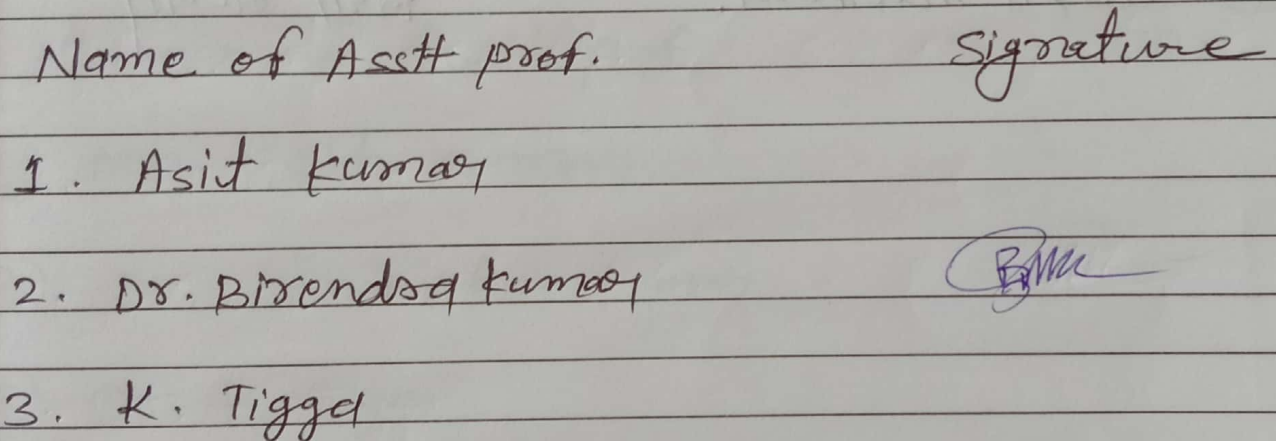 Name of Asstt prof. Signature
1. Asit kumar
2. Dr. Birendra kumar
3. K. Tigga